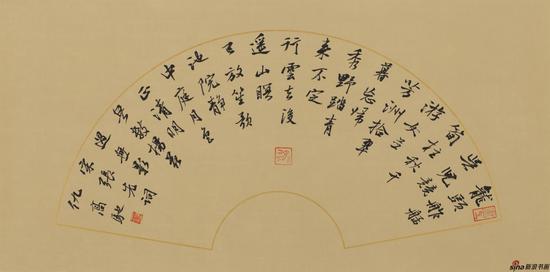 龍頭舴艋
吳兒競
筍柱秋千
游女並
芳洲拾翠
暮忘歸
秀野踏青
來不定
行雲去後
遙山暝
已放笙歌
池院靜
中庭月色
正清明
無數楊花
過無影
宋張先詞
仇高馳
sina新浪书画